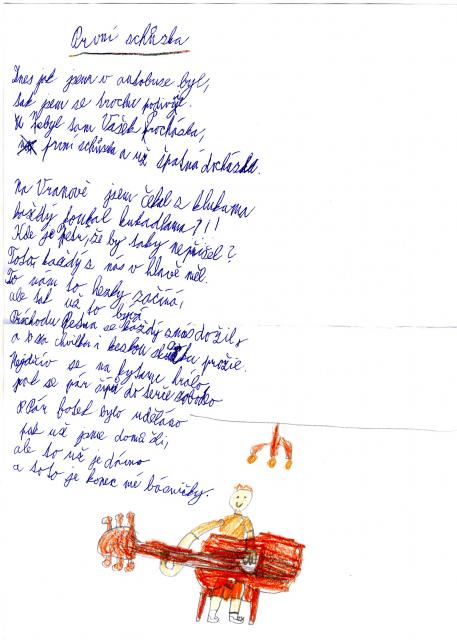 První schůzka
Dnes jak jsem v autobuse byl,
tak jsem se trochu podivil.
Nebyl tam Vašek procházka,
první schůzka a už špatná docházka.
Na Vranově jsem čekal s klukama
každý koukal kukadlama?!!
Kde je Petr, že by taky nepřišel?
Toto každý z nás v hlavě měl.
To nám to hezky začíná,
ale tak už to bývá
Příchodu Petra se každý z nás dožil,
a chvilku i hezkou prožil.
Nejdřív se na kytaru hrálo,
pak se pár šipek do terče
Pár fotek bylo uděláno
pak už jsme domů šli,
ale to už je dávno
a toto je konec mé básničky.